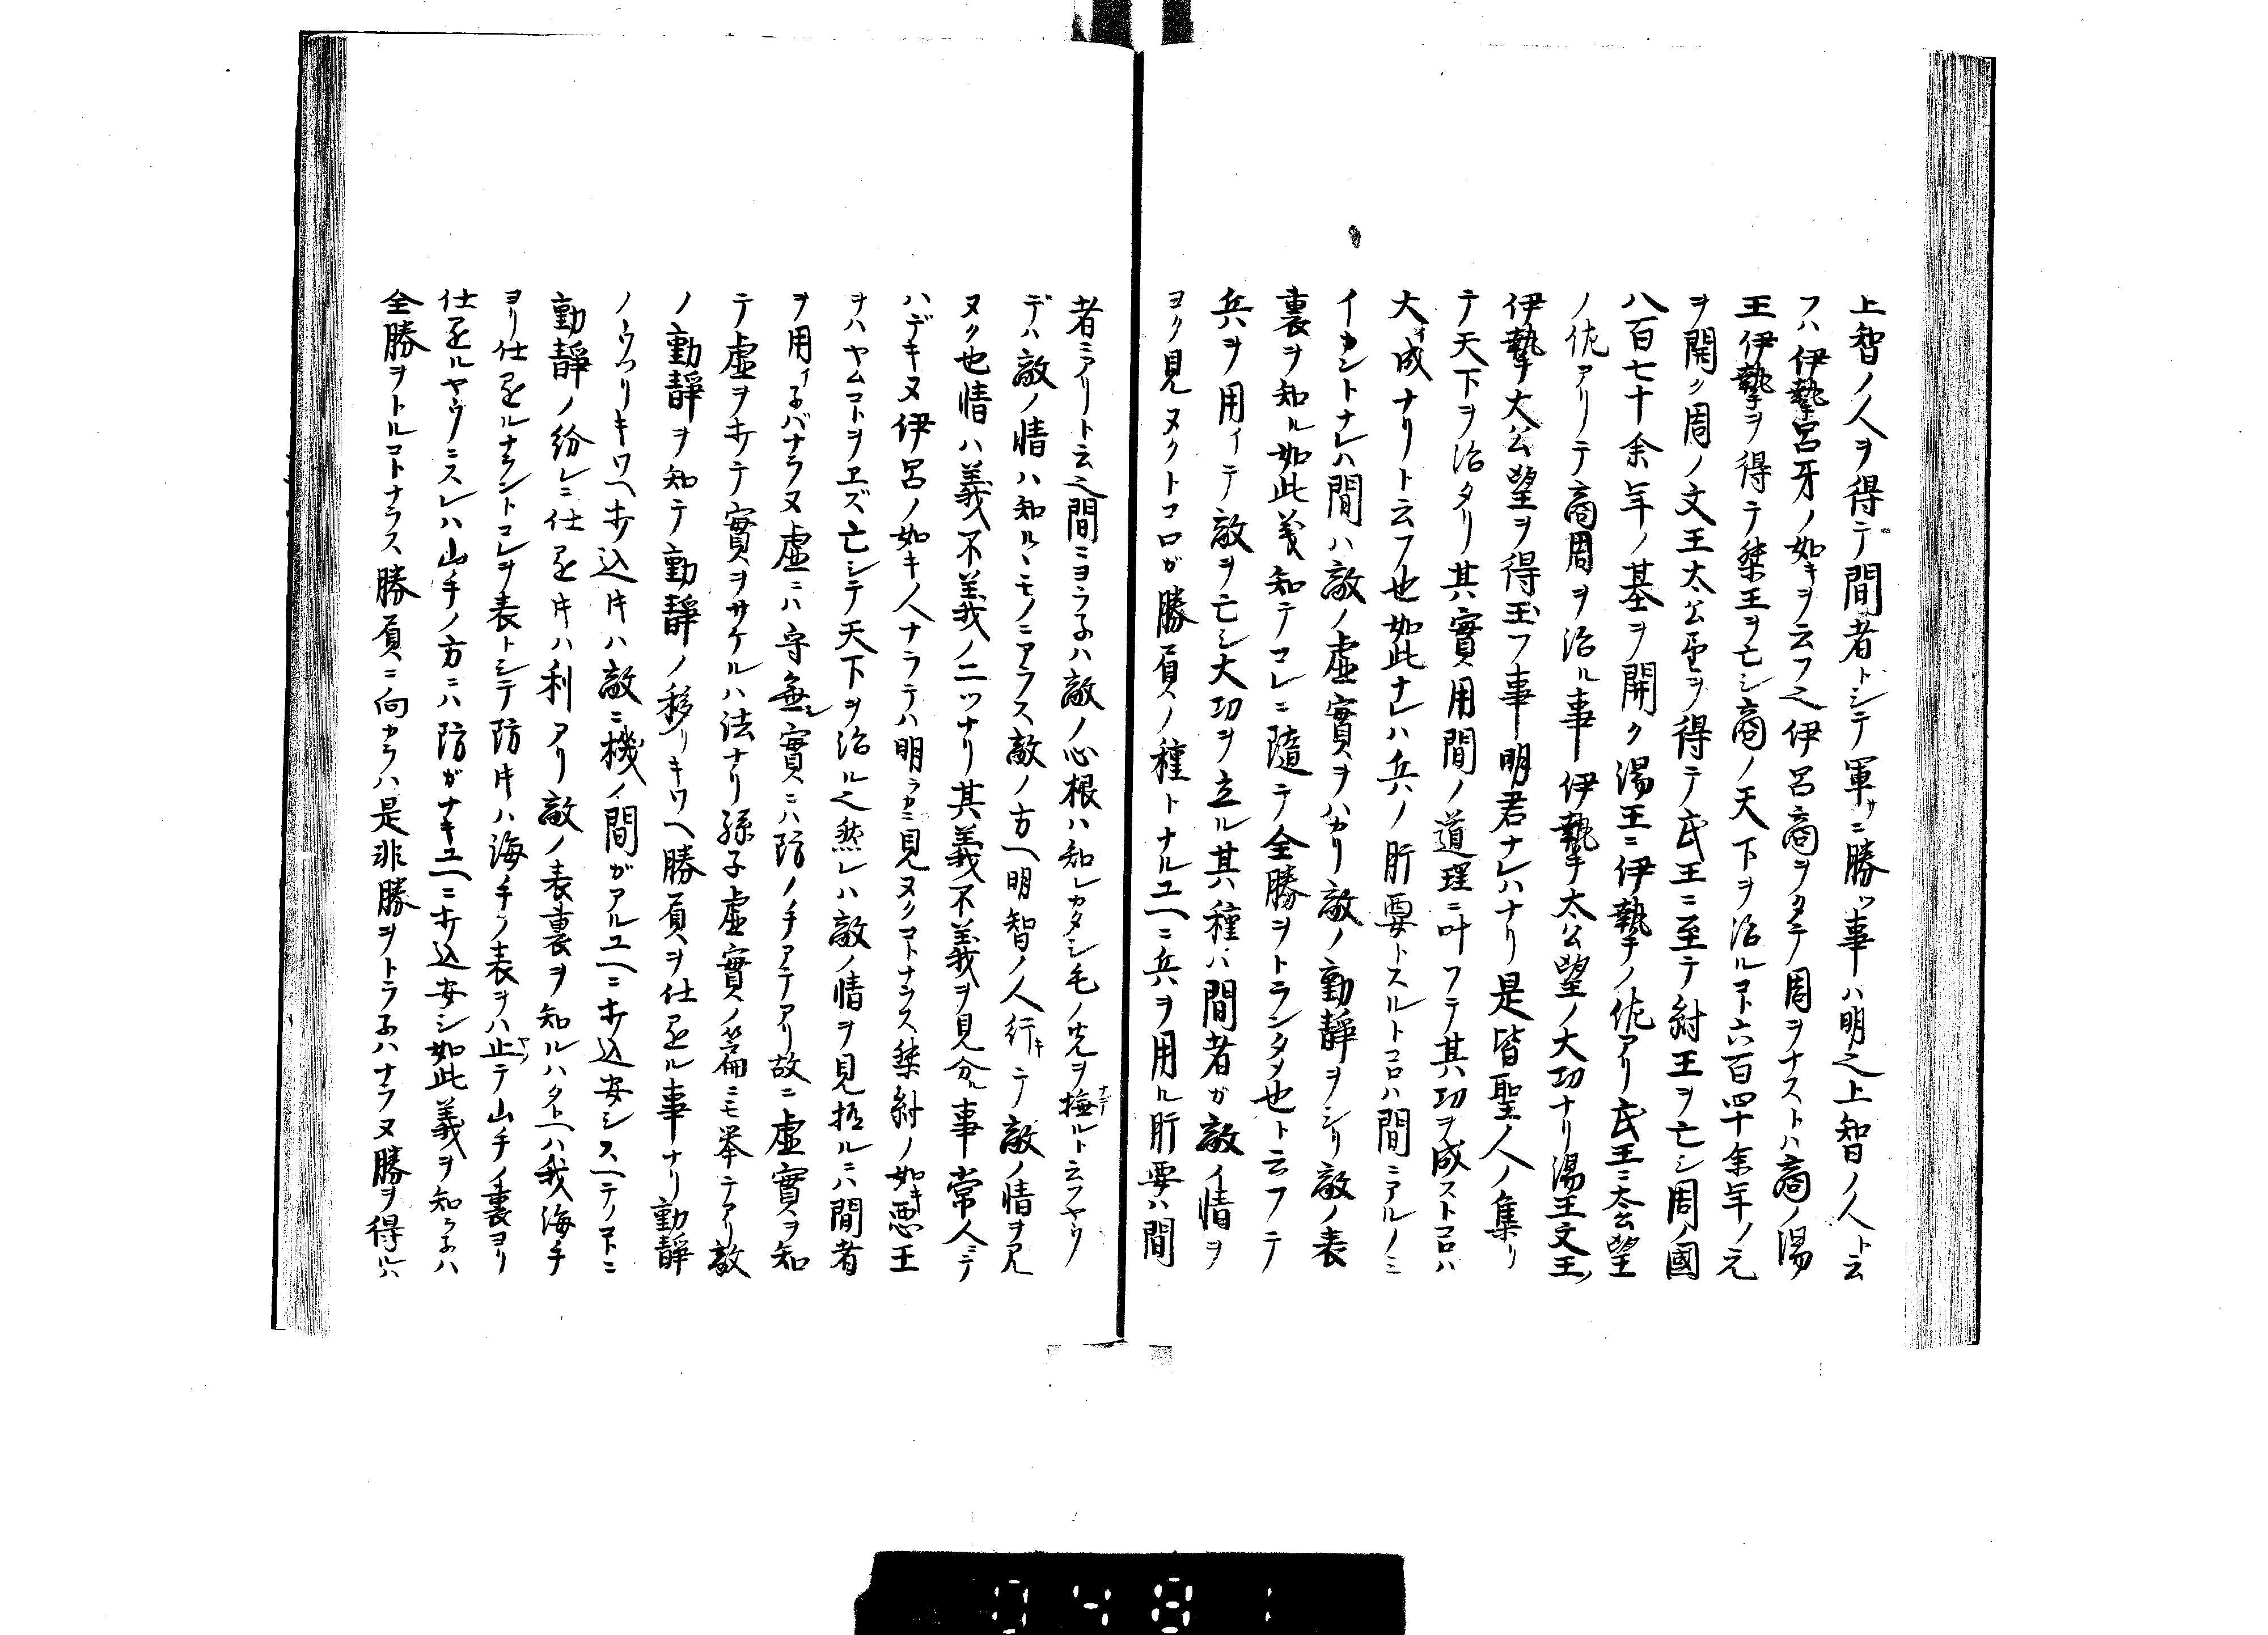 上智ノ人ヲ得テ間者トシテ軍サニ勝ツ事ハ明之上智ノ人ト云
フハ伊摯呂牙ノ如キヲ云フ之伊呂商ヲタテ周ヲナストハ商ノ湯
王伊摯ヲ得テ桀王ヲ亡シ商ノ天下ヲ治ルヿト六百四十余年ノ元
ヲ開ク周ノ文王太公望ヲ得テ武王ニ至テ紂王ヲ亡シ周ノ國
八百七十余年ノ基ヲ開ク湯王ニ伊摯ノ佐アリ武王ニ太公望
ノ佐アリテ商周ヲ治ル事伊摯太公望ノ大功ナリ湯王文王ノ
伊摯大公望ヲ得玉フ事明君ナレハナリ是皆聖人ノ集リ
テ天下ヲ治タリ其實用間ノ道理ニ叶フテ其功ヲ成ストコロハ
大イ成ナリト云フ也如此ナレハ兵ノ肝要トスルトコロハ間ニアルノミ
イカントナレハ間ハ敵ノ虚實ヲハカリ敵ノ動靜ヲシリ敵ノ表
裏ヲ知ル如此義知テコレニ隨テ全勝ヲトランタメ也ト云フテ
兵ヲ用イテ敵ヲ亡シ大功ヲ立ル其種ハ間者ガ敵ノ情ヲ
ヨク見ヌクトコロガ勝負ノ種トナルユヘニ兵ヲ用ル肝要ハ間
者ニアリト云之間ニヨラネハ敵ノ心根ハ知レカタシ毛ノ先ヲ撫ナデルト云フヤウ
デハ敵ノ情ハ知ルヽモノニアラス敵ノ方ヘ明智ノ人行キテ敵ノ情ヲ見
ヌク也情ハ義不義ノ二ツナリ其義不義ヲ見分ル事常人ニテ
ハデキヌ伊呂ノ如キノ人ナラテハ明ラカニ見ヌクコトナラス桀紂ノ如キ悪王
ヲハヤムコトヲヱズ亡シテ天下ヲ治ル之然レハ敵ノ情ヲ見抜ルニハ間者
ヲ用イ子バナラヌ虚ニハ守無シ實ニハ防ノ手アテアリ故ニ虚實ヲ知
テ虚ヲ打テ實ヲサケルハ法ナリ孫子虚實ノ篇ニモ挙テアリ敵
ノ動靜ヲ知テ動靜ノ移リキワヘ勝負ヲ仕掛ル事ナリ動靜
ノウツリキワヘ打込片ハ敵ニ機ノ間ガアルユヘニ打込安シスヘテノコトニ
動靜ノ紛レニ仕掛片ハ利アリ敵ノ表裏ヲ知ルハタトヘハ我海手
ヨリ仕掛ルナラントコレヲ表トシテ防片ハ海手ノ表ヲハ止ヤメテ山手ノ裏ヨリ
仕掛ルヤウニスレハ山手ノ方ニハ防ガナキユヘニ打込安シ如此義ヲ知ラネハ
全勝ヲトルコトナラス勝負ニ向カラハ是非勝ヲトラネハナラヌ勝ヲ得ルハ